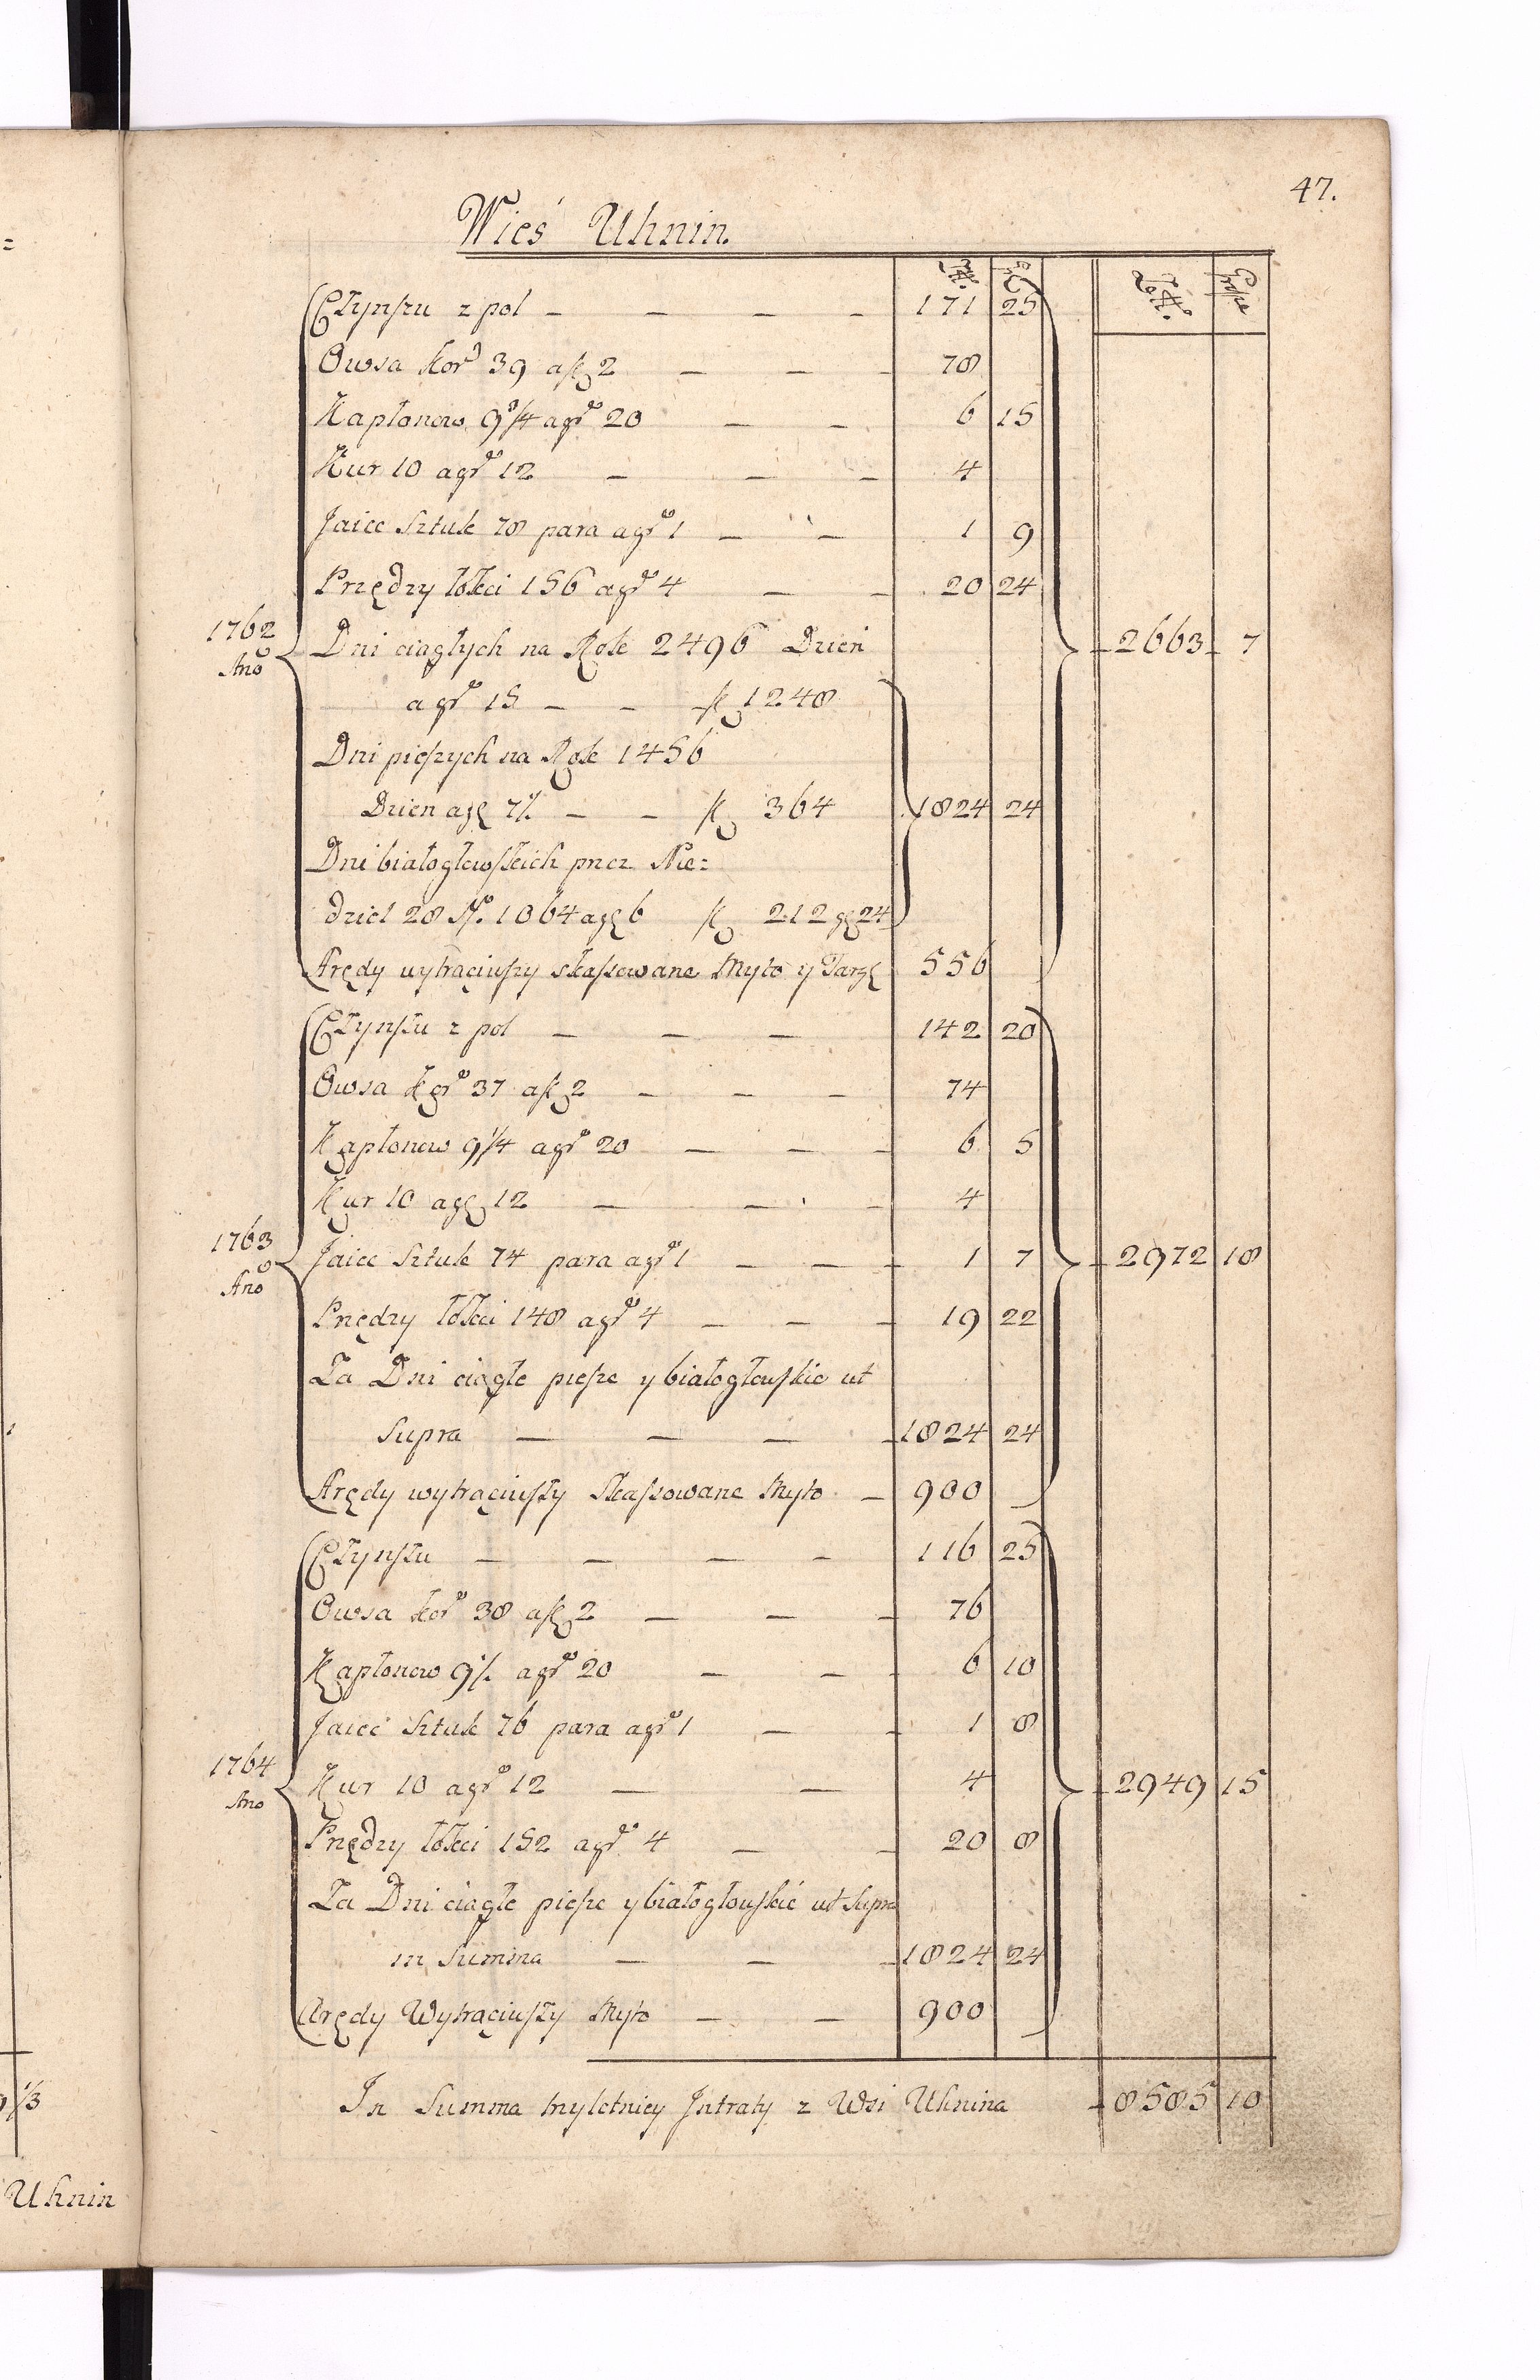 47.
Wieś Uhnin.
Zł. gr Zołł. Grosze
Czynszu z pol — — — — 171 25
Owsa kor 39 a zł 2 — — — 78
Kapłonow 9 3/4 a gr 20 — — 6 15
Kur 10 a gr 12 — — — 4
Jaiec Sztuk 78 para a gr 1 — — 1 9
Przędzy łokci 156 a gr 4 — — 20 24
1762 Ano
Dni ciągłych na Rok 2496 Dzień
a gr 15 — — zł 1248
2663 7
Dni pieszych na Rok 1456
Dzien a gr 7 1/2 — — zł 364 1824 24
Dni białogłowskich przez Nie:
dziel 28 No. 1064 a gr 6 zł 212 gr 24
Arędy wytrąciwszy skassowane Myto y Targ 556
Czynszu z pol — — — 142 20
Owsa kor 37 a zł 2 — — — 74
Kapłonow 9 1/4 a gr 20 — — — 6 5
Kur 10 a gr 12 — — — 4
1763 Ano
Jaiec Sztuk 74 para a gr 1 — — — 1 7
2972 18
Przędzy łokci 148 a gr 4 — — — 19 22
Za Dni ciągłe piesze y białogłowskie ut
Supra — — — — 1824 24
Arędy wytrąciwszy Skassowane Myto — 900
Czynszu — — — — 116 25
Owsa kor 38 a zł 2 — — — 76
Kapłonow 9 1/2 a gr 20 — — — 6 10
Jaiec Sztuk 76 para a gr 1 — — 1 8
1764 Ano
Kur 10 a gr 12 — — 4
2949 15
Przędzy łokci 152 a gr 4 — — 20 8
Za Dni ciągłe piesze y białogłowskie ut Supra
in Summa — — — 1824 24
Arędy Wytrąciwszy Myto — — 900
In Summa tryletniey Jntraty z Wsi Uhnina 8585 10
1/3
Uhnin